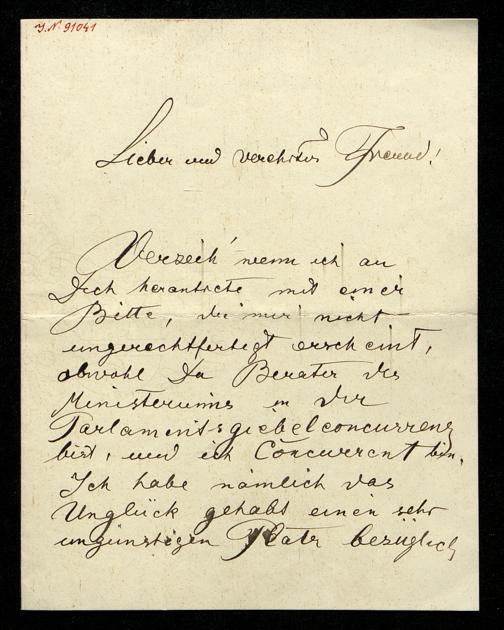 J.N. 91041
Lieber und verehrter Freund!
Verzeih' wenn ich an
Dich herantrete mit einer
Bitte, die mir nicht
ungerechtfertigt erscheint,
obwohl Du Berater des
Ministeriums in der
Parlamentsgiebelconcurrenz
bist, und ich Concurrent bin.
Ich habe nämlich das
Unglück gehabt einen sehr
ungünstigen Platz bezüglich